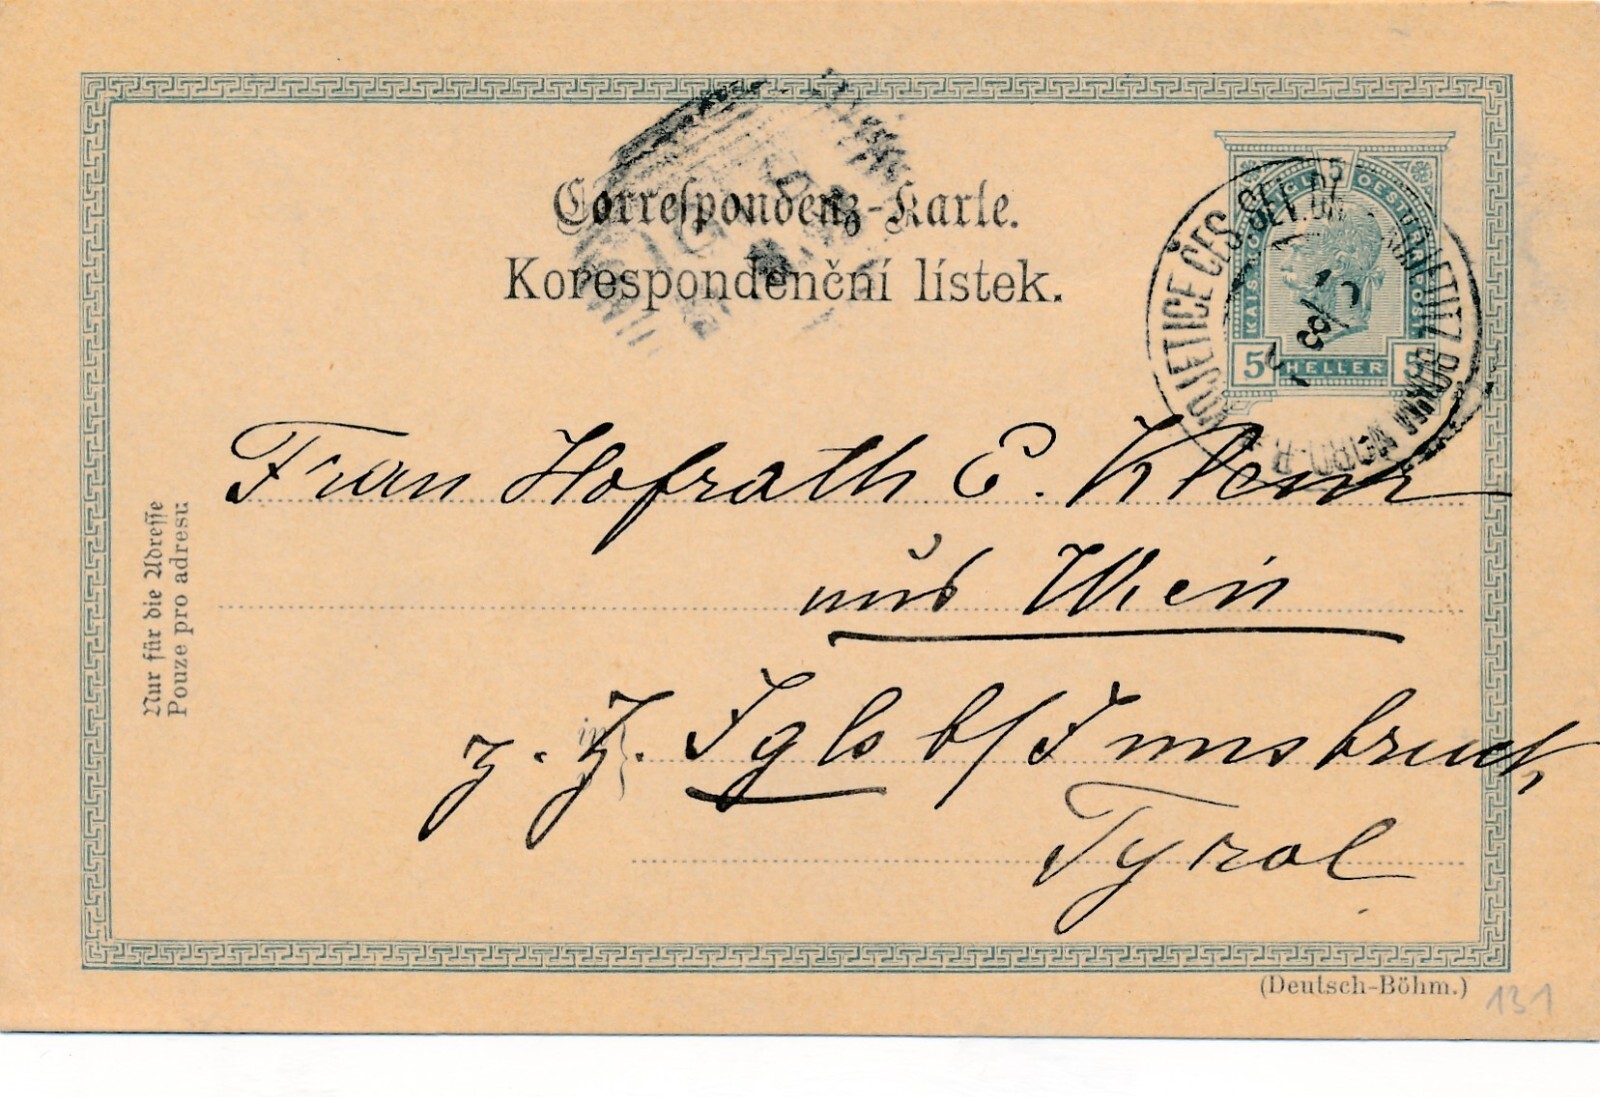 Correspondenz-Karte.
Korespondenční lístek.
KAIS. KÖNIGL. OESTERR. POST
5
5 HELLER 5
KOJETICE ČES. SEV. DR.
KOJETITZ BÖHM. NORD-B.
Frau Hofrath E. Klein
aus Wien
z. Z. Igls b/Innsbruck
Tyrol
Nur für die Adresse
Pouze pro adresu
(Deutsch-Böhm.)
131